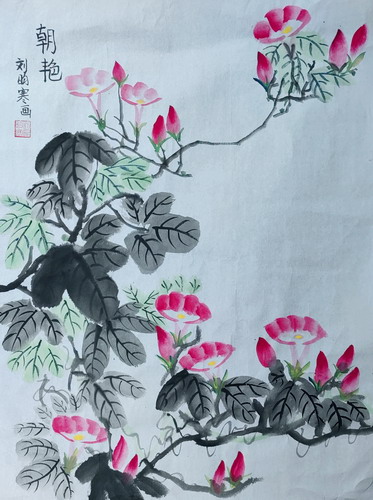 朝艳
刘昀寒画